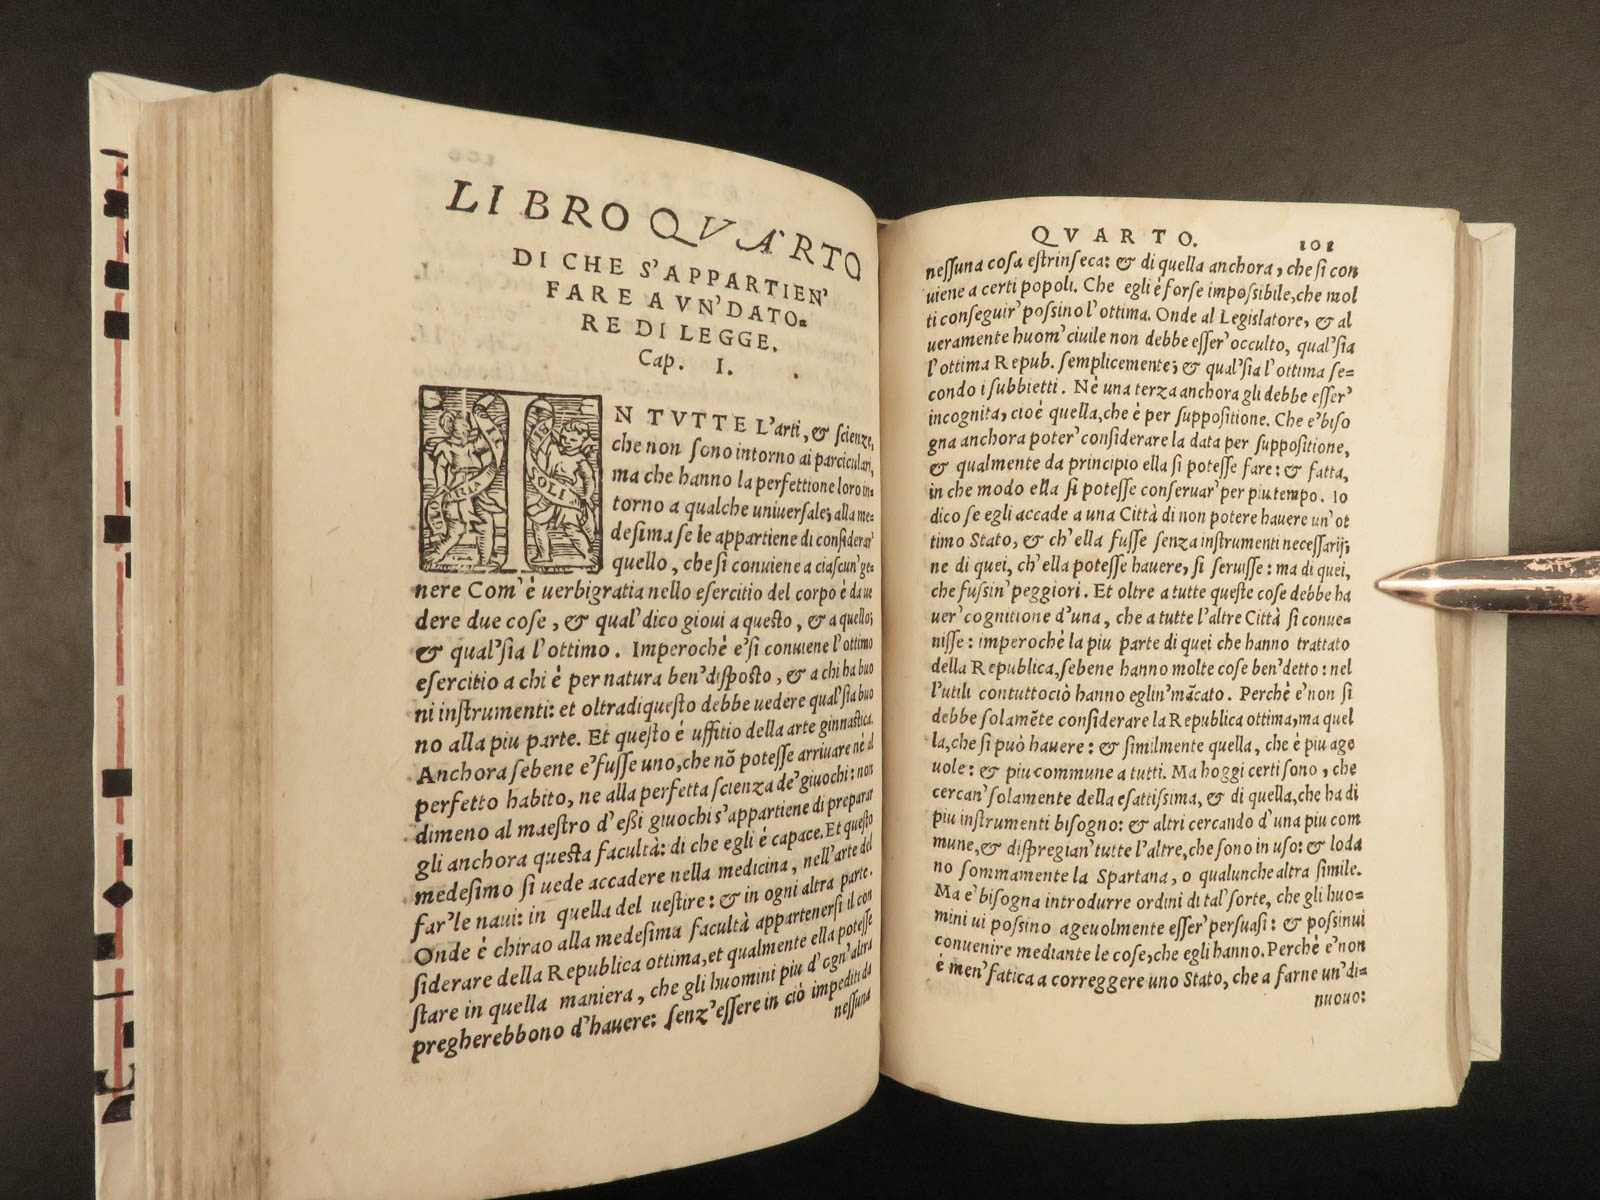 LIBRO QVARTO
DI CHE S'APPARTIEN'
FARE A VN'DATO=
RE DI LEGGE.
Cap. I.
N TVTTE L'arti, & scienze,
che non sono intorno ai particulari,
ma che hanno la perfettione loro in=
torno a qualche uniuersale; alla me=
desima se le appartiene di considerar'
quello, che si conuiene a ciascun' ge=
nere Com' è uerbigratia nello esercitio del corpo è da ue
dere due cose, & qual' dico gioui a questo, & a quello;
& qual' sia l'ottimo. Imperochè e' si conuiene l'ottimo
esercitio a chi è per natura ben' disposto, & a chi ha buo
ni instrumenti: et oltradiquesto debbe uedere qual' sia buo
no alla piu parte. Et questo è uffitio della arte ginnastica.
Anchora sebene e' fusse uno, che nõ potesse arriuare nè al
perfetto habito, ne alla perfetta scienza de' giuochi: non
dimeno al maestro d'eßi giuochi s'appartiene di preparar
gli anchora questa facultà: di che egli è capace. Et questo
medesimo si uede accadere nella medicina, nell'arte del
far' le naui: in quella del uestire: & in ogni altra parte.
Onde è chirao alla medesima facultà appartenersi il con
siderare della Republica ottima, et qualmente ella potesse
stare in quella maniera, che gli huomini piu d' ogn' altra
pregherebbono d'hauere: senz' essere in ciò impediti da
nessuna
QVARTO. 101
nessuna cosa estrinseca: & di quella anchora, che si con
uiene a certi popoli. Che egli è forse impossibile, che mol
ti conseguir' possino l'ottima. Onde al Legislatore, & al
ueramente huom' ciuile non debbe esser' occulto, qual' sia
l'ottima Repub. semplicemente; & qual' sia l'ottima se=
condo i subbietti. Nè una terza anchora gli debbe esser'
incognita, cioè quella, che è per suppositione. Che e' biso
gna anchora poter' considerare la data per suppositione,
& qualmente da principio ella si potesse fare: & fatta,
in che modo ella si potesse conseruar' per piu tempo. Io
dico se egli accade a una Città di non potere hauere un' ot
timo Stato, & ch' ella fusse senza instrumenti necessarij;
ne di quei, ch' ella potesse hauere, si seruisse: ma di quei,
che fussin' peggiori. Et oltre a tutte queste cose debbe ha
uer' cognitione d'una, che a tutte l'altre Città si conue=
nisse: imperochè la piu parte di quei che hanno trattato
della Republica, sebene hanno molte cose ben' detto: nel
l'utili contuttociò hanno eglin' mãcato. Perchè e' non si
debbe solamẽte considerare la Republica ottima, ma quel
la, che si può hauere: & similmente quella, che è piu age
uole: & piu commune a tutti. Ma hoggi certi sono, che
cercan' solamente della esattissima, & di quella, che ha di
piu instrumenti bisogno: & altri cercando d'una piu com
mune, & dispregian' tutte l'altre, che sono in uso: & loda
no sommamente la Spartana, o qualunche altra simile.
Ma e' bisogna introdurre ordini di tal' sorte, che gli huo=
mini ui possino ageuolmente esser' persuasi: & possinui
conuenire mediante le cose, che egli hanno. Perchè e' non
è men' fatica a correggere uno Stato, che a farne un' di=
nuouo: